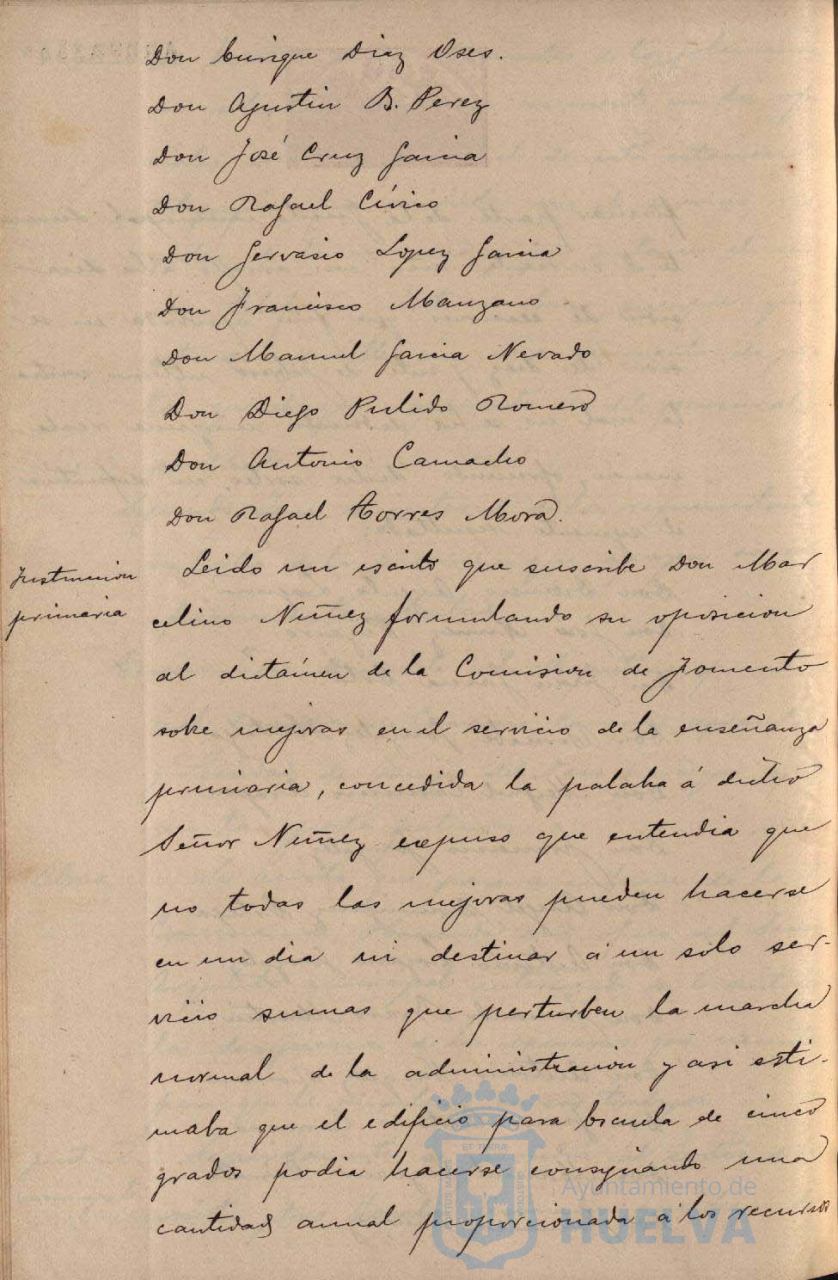 Don Enrique Diaz Oses.
Don Agustin B. Perez
Don José Cruz Garcia
Don Rafael Cívico
Don Gervasio Lopez Garcia
Don Francisco Manzano
Don Manuel Garcia Nevado
Don Diego Pulido Romero
Don Antonio Camacho
Don Rafael Torres Mora.
Instruccion
primaria
Leido un escrito que suscribe Don Mar
celino Nuñez formulando su oposicion
al dictámen de la Comision de Fomento
sobre mejoras en el servicio de la enseñanza
primaria, concedida la palabra á dicho
Señor Nuñez expuso que entendia que
no todas las mejoras pueden hacerse
en un dia ni destinar á un solo ser-
vicio sumas que perturben la marcha
normal de la administracion y asi esti-
maba que el edificio para Escuela de cinco
grados podia hacerse consignando una
cantidad anual proporcionada á los recursos
Ayuntamiento de
HUELVA